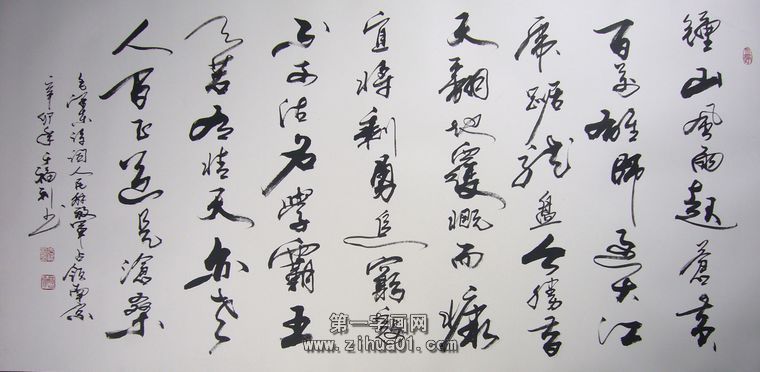 鐘山风雨起蒼黄
百万雄师过大江
虎踞龙盘今勝昔
天翻地覆慨而慷
宜将剩勇追窮寇
不可沽名學霸王
天若有情天亦老
人间正道是滄桑
毛泽东诗词人民解放軍占领南京
辛卯年 福利书
第一字画网
www.zihua01.com